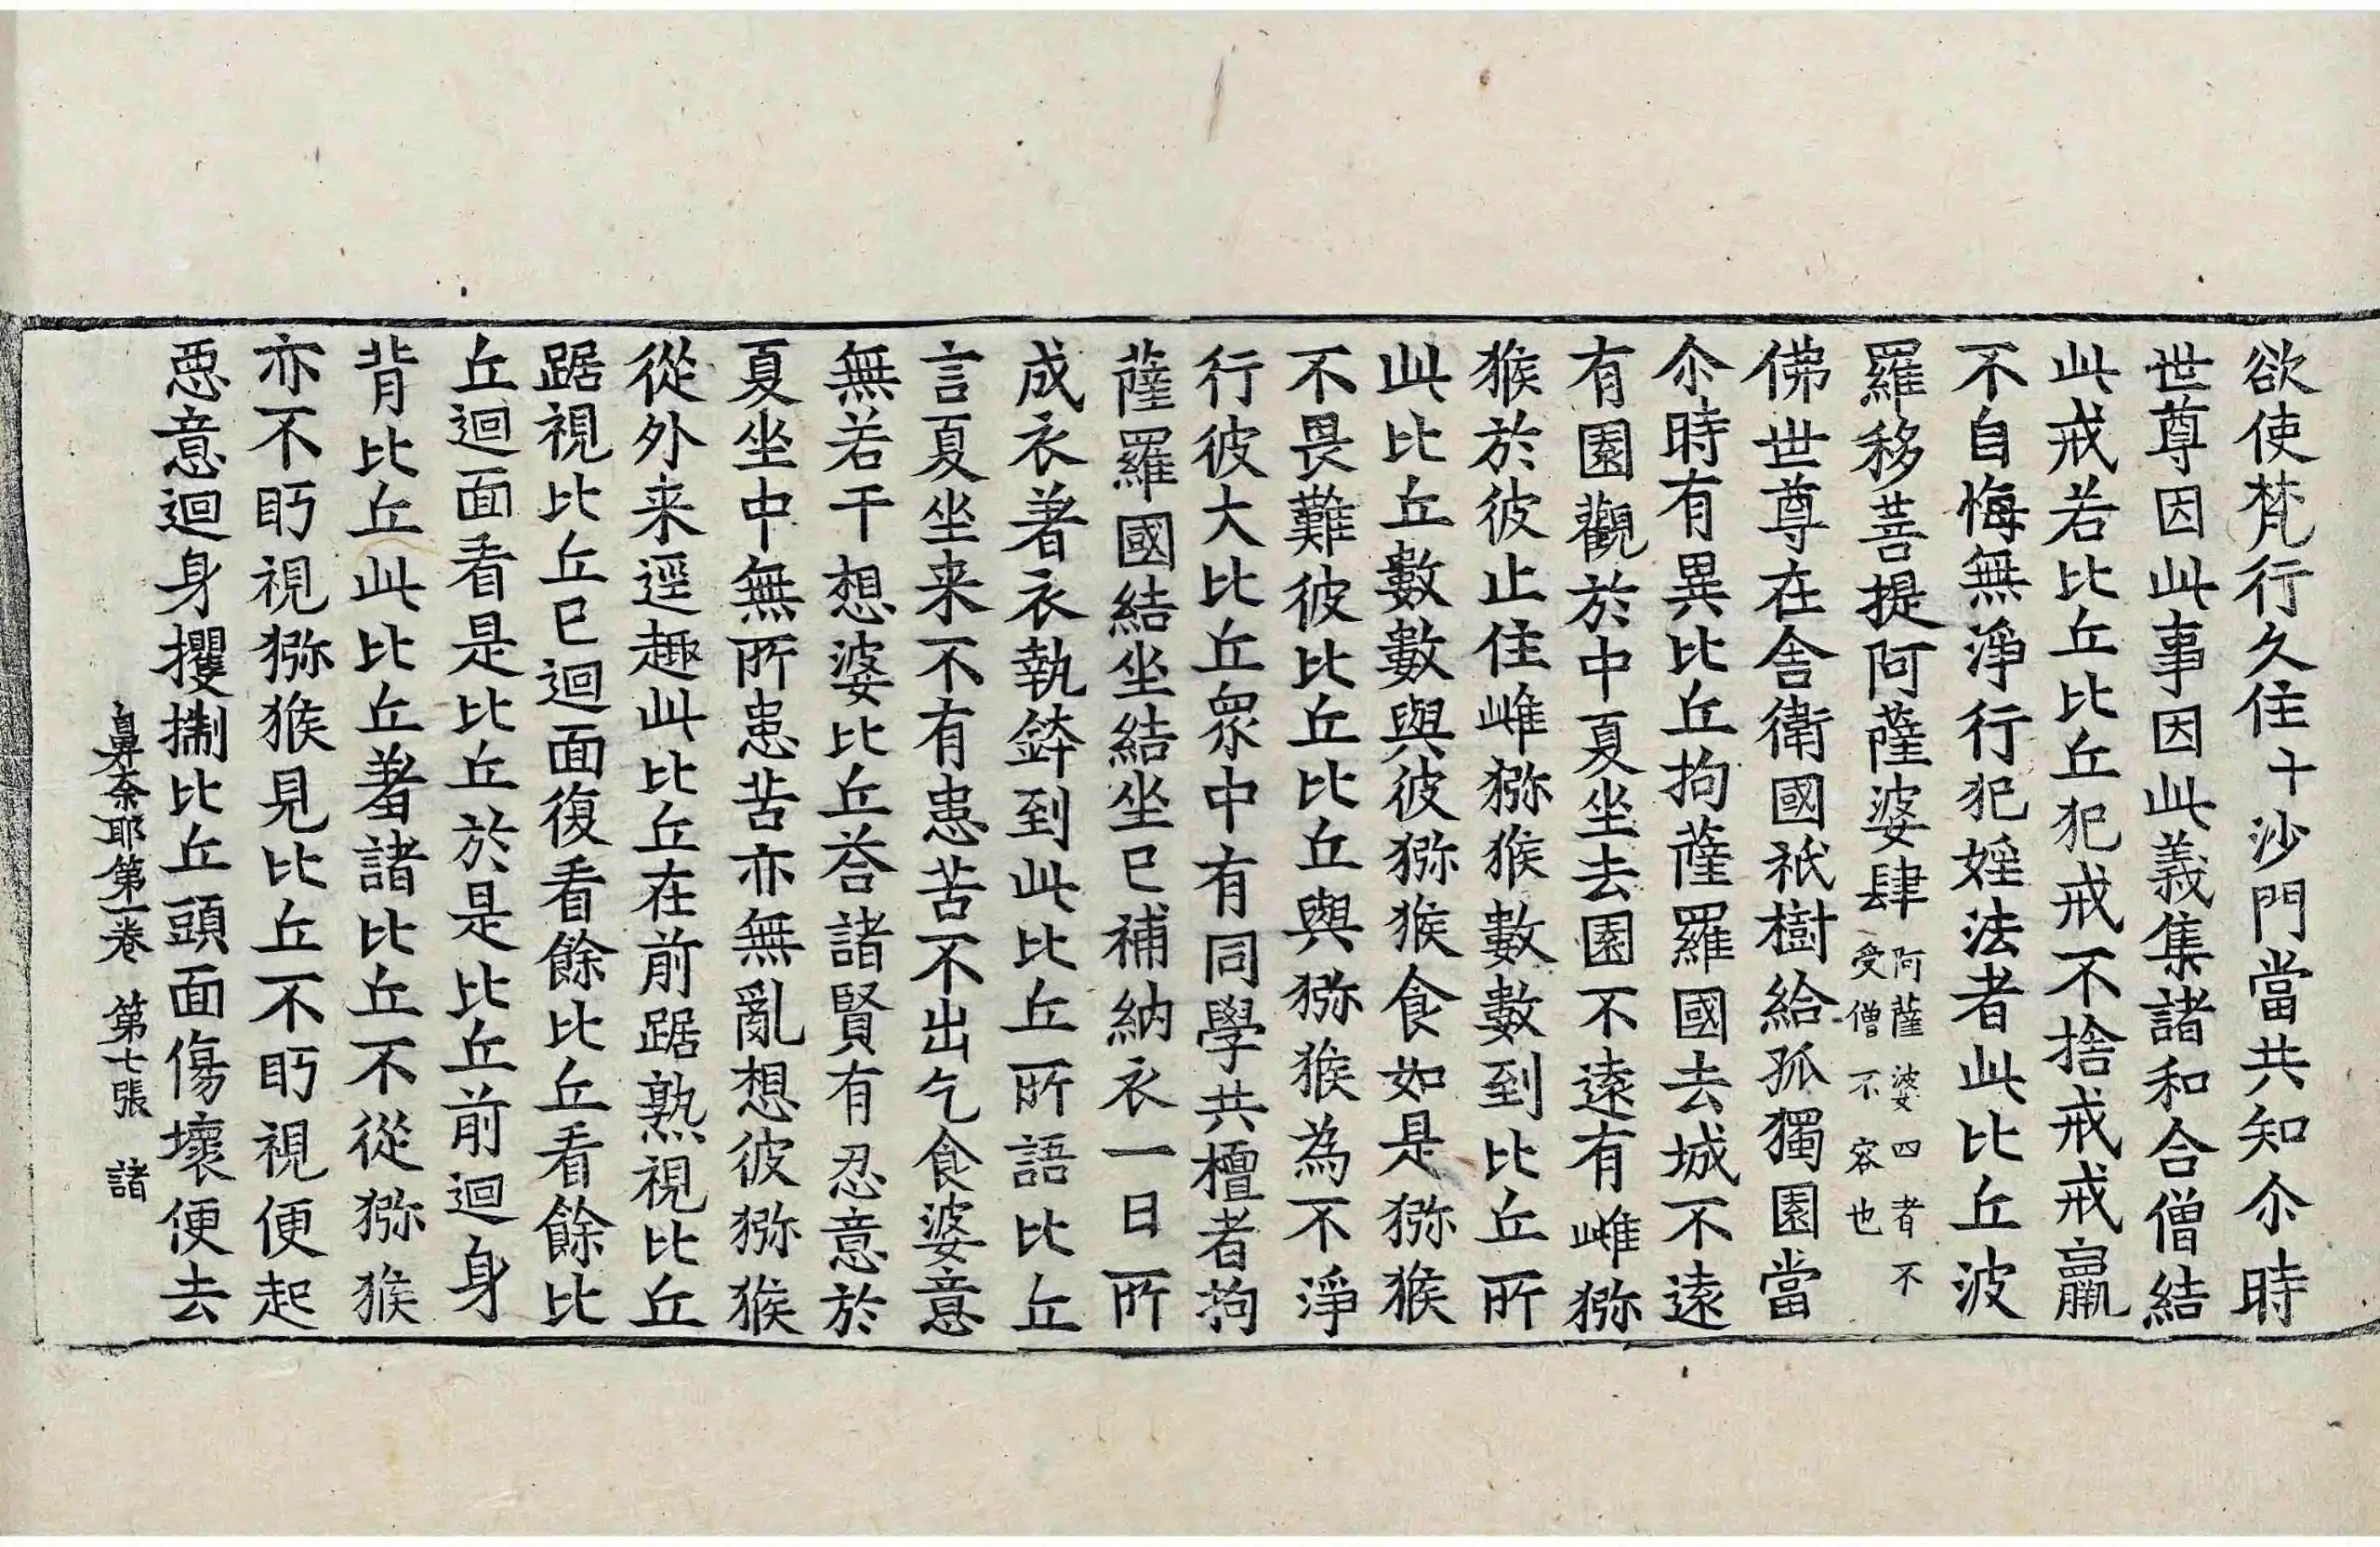 欲使梵行久住十沙門當共知尒時
世尊因此事因此義集諸和合僧結
此戒若比丘比丘犯戒不捨戒戒羸
不自悔無淨行犯婬法者此比丘波
羅移菩提阿薩婆肆阿薩婆四者不受僧不容也
佛世尊在舍衛國祇樹給孤獨園當
尒時有異比丘拘薩羅國去城不遠
有園觀於中夏坐去園不遠有雌猕
猴於彼止住雌猕猴數數到比丘所
此比丘數數與彼猕猴食如是猕猴
不畏難彼比丘比丘與猕猴為不淨
行彼大比丘眾中有同學共檀者拘
薩羅國結坐結坐已補納衣一日所
成衣著衣執鉢到此比丘所語比丘
言夏坐来不有患苦不出乞食婆意
無若干想婆比丘荅諸賢有忍意於
夏坐中無所患苦亦無亂想彼猕猴
從外来逕趣此比丘在前踞熟視比丘
踞視比丘已迴面復看餘比丘看餘比
丘迴面看是比丘於是比丘前迴身
背比丘此比丘羞諸比丘不從猕猴
亦不眄視猕猴見比丘不眄視便起
惡意迴身攫㨝比丘頭面傷壞便去
鼻奈耶第一卷　第七張　諸